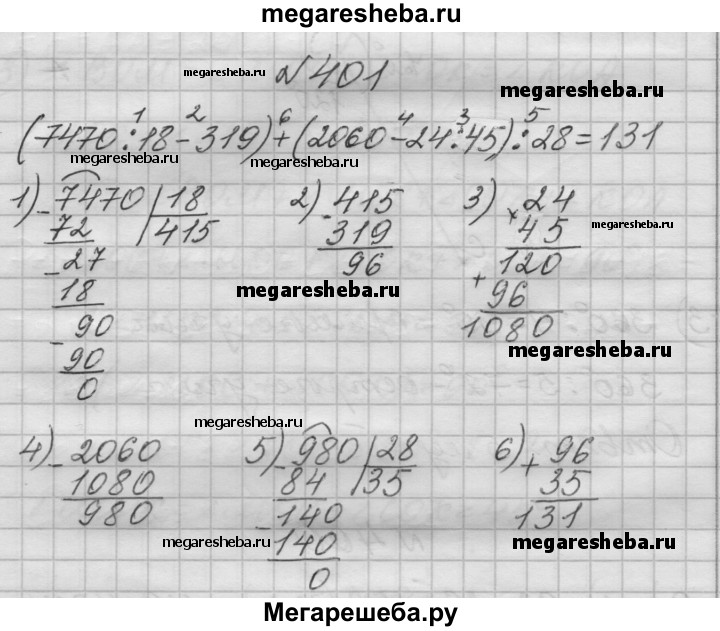 megaresheba.ru
megaresheba.ru №401
megaresheba.ru
1 2 6 4 3 5
(7470:18-319)+(2060-24·45):28=131
megaresheba.ru megaresheba.ru
1) 7470 | 18
- 72 | 415
- 27
18
- 90
90
0
2) - 415
319
96
megaresheba.ru
3) × 24
45
megaresheba.ru
+ 120
96
1080
megaresheba.ru
megaresheba.ru
4) - 2060
1080
980
5) - 980 | 28
84 | 35
- 140
140
0
6) + 96
35
131
megaresheba.ru
megaresheba.ru
Мегарешеба.ру